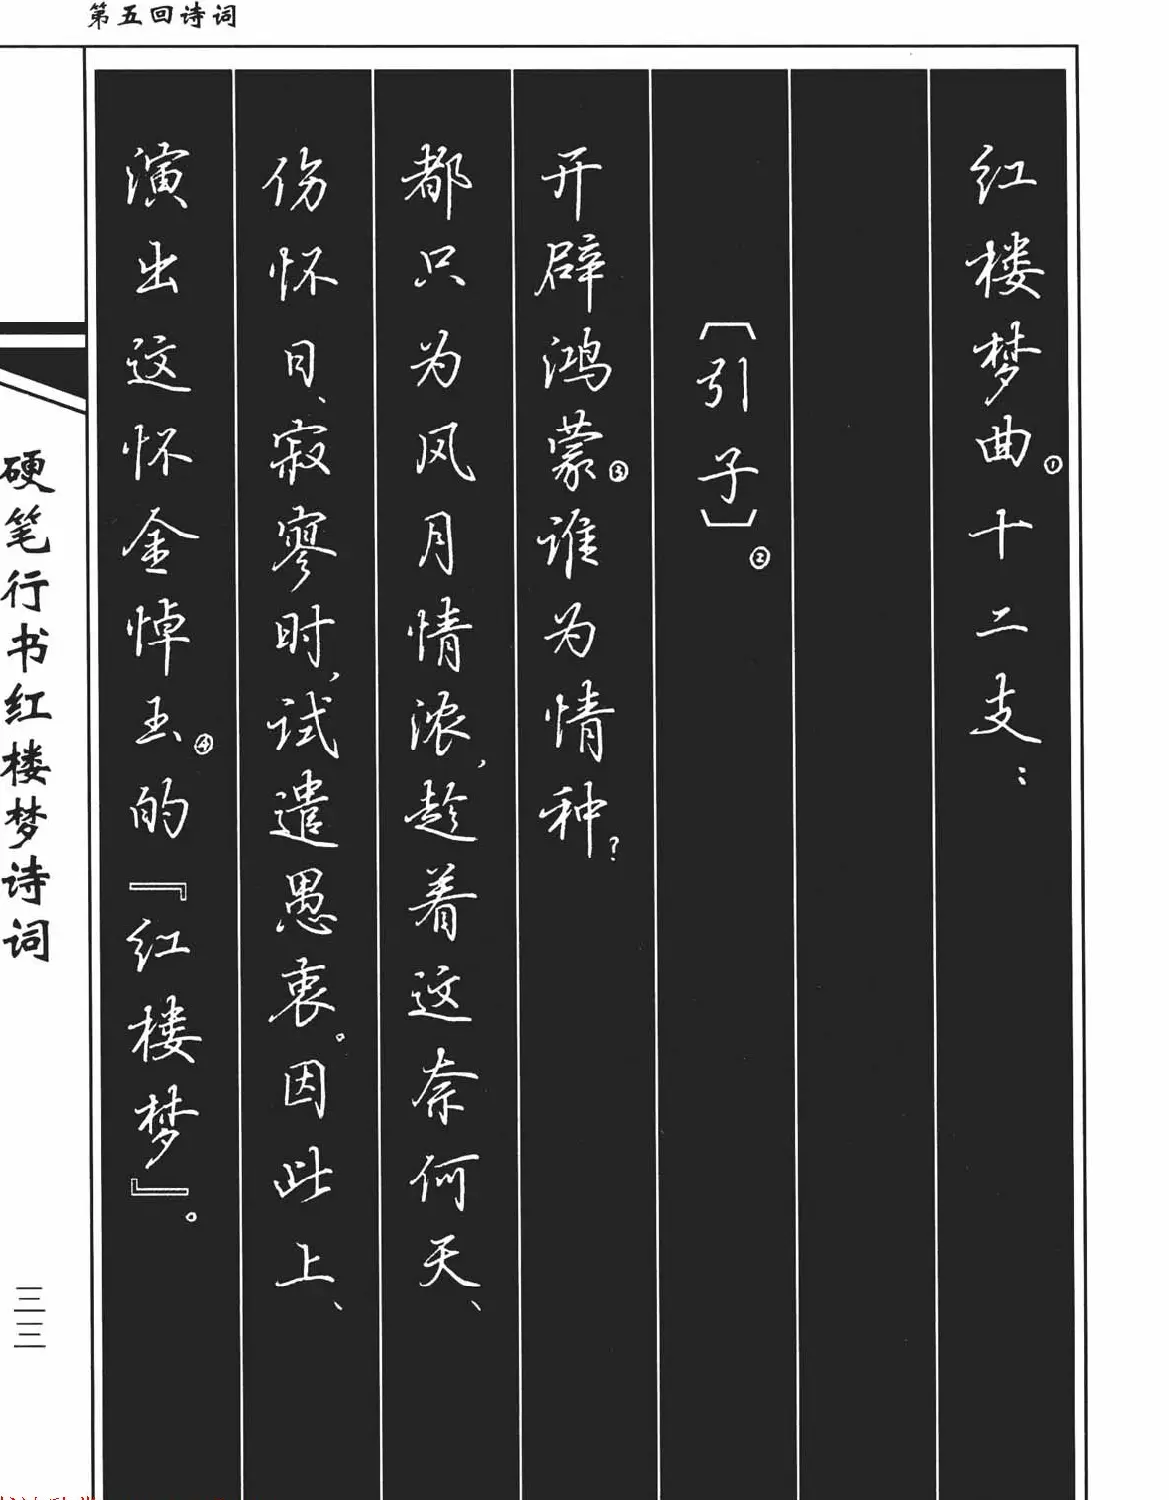 第五回诗词
红楼梦曲①十二支：
〔引子〕②
开辟鸿蒙③谁为情种？
都只为风月情浓，趁着这奈何天、
伤怀日、寂寥时，试遣愚衷。因此上、
演出这怀金悼玉④的『红楼梦』。
硬笔行书红楼梦诗词
三三